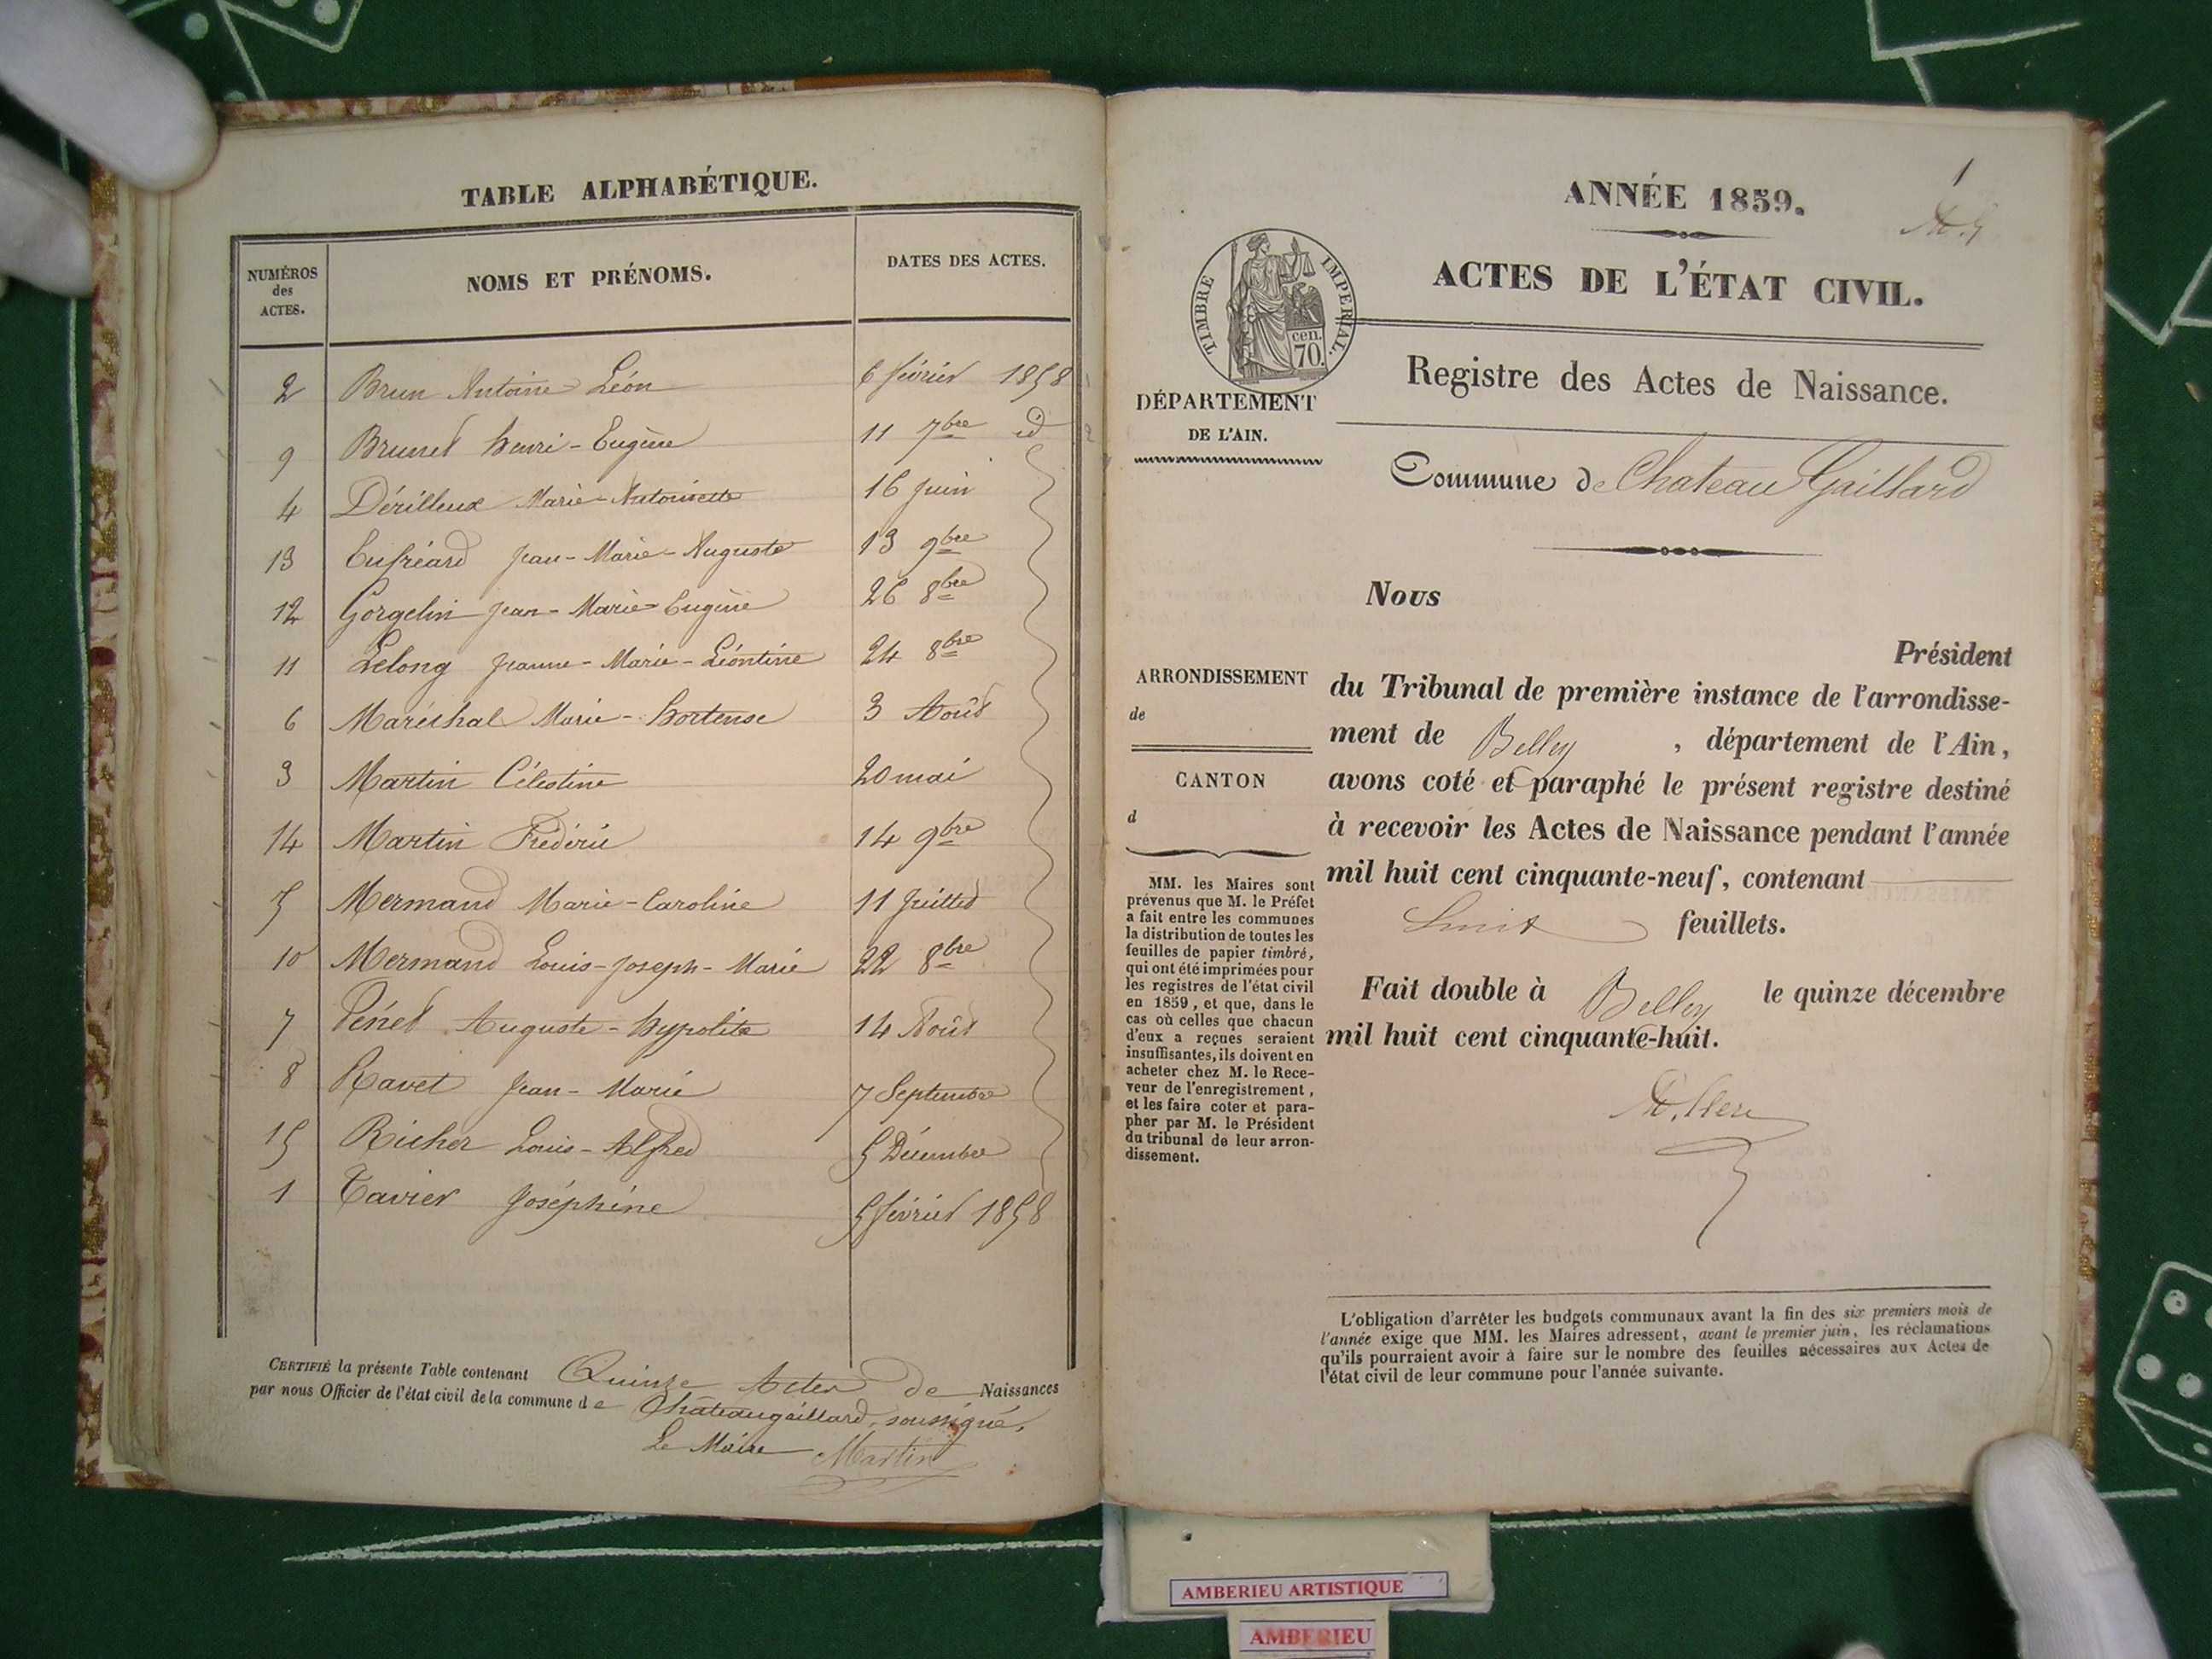 TABLE ALPHABÉTIQUE.
NUMÉROS des ACTES.
NOMS ET PRÉNOMS.
DATES DES ACTES.
2 Brun Antoine Léon 6 février 1858
9 Brunet henri-Eugène 11 7bre id
4 Dérilleux Marie-Antoinette 16 juin
13 Eufréard Jean-Marie-Auguste 13 9bre
12 Gorgelin Jean-Marie-Eugène 26 8bre
11 Lelong Jeanne-Marie-Léontine 24 8bre
6 Maréchal Marie-hortense 3 Août
3 Martin Célestine 20 mai
14 Martin Frédéric 14 9bre
5 Mermand Marie-Caroline 11 Juillet
10 Mermand Louis-Joseph-Marie 22 8bre
7 Pénet Auguste-hypolite 14 Août
8 Ravet Jean-Marie 7 Septembre
15 Richer Louis-Alfred 5 Décembre
1 Tavier Joséphine 5 février 1858
CERTIFIÉ la présente Table contenant Quinze Actes de Naissances
par nous Officier de l'état civil de la commune de Châteaugaillard, soussigné.
Le Maire Martin
1
ANNÉE 1859.
ACTES DE L'ÉTAT CIVIL.
TIMBRE IMPERIAL.
cen.
70.
Registre des Actes de Naissance.
DÉPARTEMENT
DE L'AIN.
Commune de Chateau Gaillard
Nous
Président
ARRONDISSEMENT
de
CANTON
d
du Tribunal de première instance de l'arrondisse-
ment de Belley, département de l'Ain,
avons coté et paraphé le présent registre destiné
à recevoir les Actes de Naissance pendant l'année
mil huit cent cinquante-neuf, contenant
huit feuillets.
Fait double à Belley le quinze décembre
mil huit cent cinquante-huit.
MM. les Maires sont
prévenus que M. le Préfet
a fait entre les communes
la distribution de toutes les
feuilles de papier timbré,
qui ont été imprimées pour
les registres de l'état civil
en 1859, et que, dans le
cas où celles que chacun
d'eux a reçues seraient
insuffisantes, ils doivent en
acheter chez M. le Rece-
veur de l'enregistrement,
et les faire coter et para-
pher par M. le Président
du tribunal de leur arron-
dissement.
L'obligation d'arrêter les budgets communaux avant la fin des six premiers mois de
l'année exige que MM. les Maires adressent, avant le premier juin, les réclamations
qu'ils pourraient avoir à faire sur le nombre des feuilles nécessaires aux Actes de
l'état civil de leur commune pour l'année suivante.
AMBERIEU ARTISTIQUE
AMBERIEU